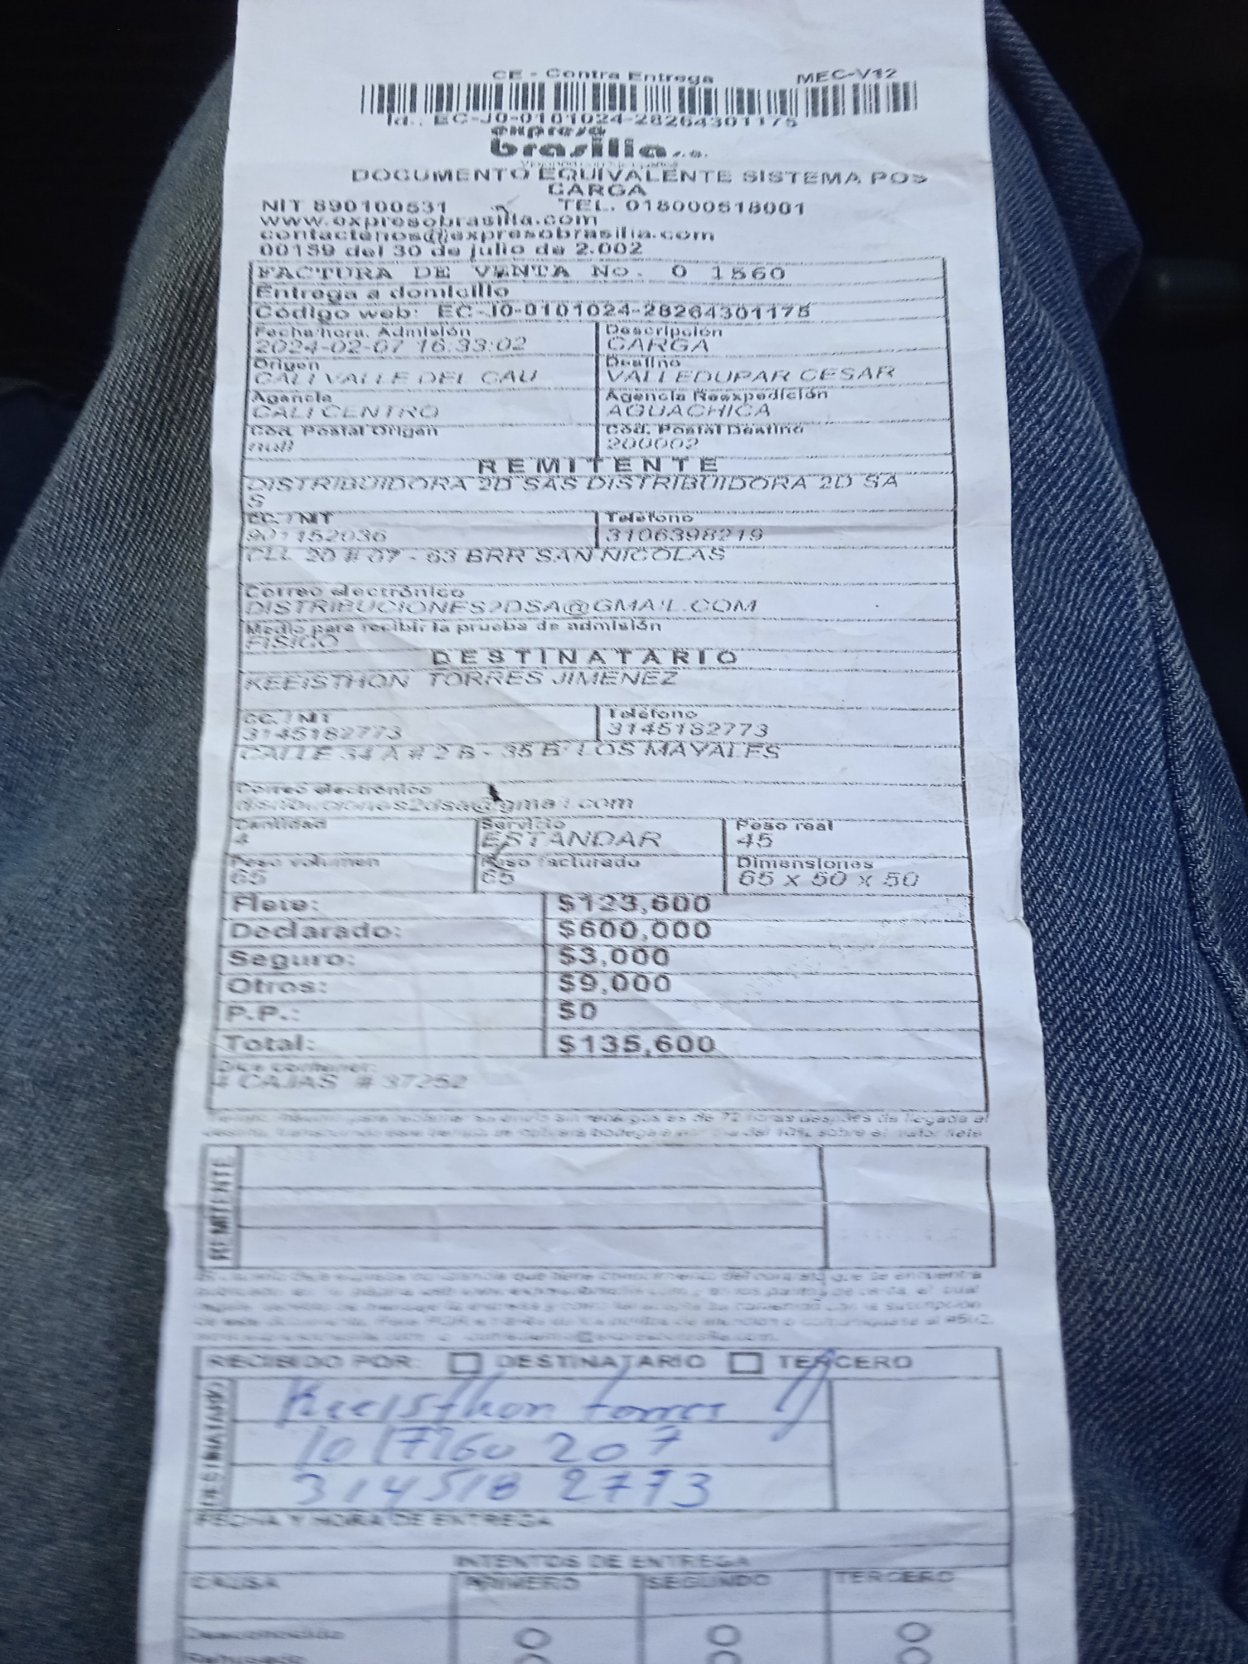 CE - Contra Entrega MEC-V12
Id.: EC-J0-0101024-28264301175
expreso
brasilia s.a.
DOCUMENTO EQUIVALENTE SISTEMA POS
CARGA
NIT 890100531 TEL. 018000518001
www.expresobrasilia.com
contactenos@expresobrasilia.com
00159 del 30 de julio de 2.002
FACTURA DE VENTA No. 0 1560
Entrega a domicilio
Código web: EC-J0-0101024-28264301175
Fecha/hora. Admisión Descripción
2024-02-07 16:33:02 CARGA
Origen Destino
CALI VALLE DEL CAU VALLEDUPAR CESAR
Agencia Agencia Reexpedición
CALI CENTRO AGUACHICA
Cód. Postal Origen Cód. Postal Destino
null 200002
REMITENTE
DISTRIBUIDORA 2D SAS DISTRIBUIDORA 2D SA
S
CC. / NIT Teléfono
901152036 3106398219
CLL 20 # 07 - 63 BRR SAN NICOLAS
Correo electrónico
DISTRIBUCIONES2DSA@GMAIL.COM
Medio para recibir la prueba de admisión
FISICO
DESTINATARIO
KEEISTHON TORRES JIMENEZ
CC. / NIT Teléfono
3145182773 3145182773
CALLE 34 A # 2 B - 35 B/ LOS MAYALES
Correo electrónico
distribuciones2dsa@gmail.com
Cantidad Servicio Peso real
4 ESTANDAR 45
Peso volumen Peso facturado Dimensiones
65 65 65 x 50 x 50
Flete: $123,600
Declarado: $600,000
Seguro: $3,000
Otros: $9,000
P.P.: $0
Total: $135,600
Dice contener:
4 CAJAS # 37252
REMITENTE
RECIBIDO POR: DESTINATARIO TERCERO
DESTINATARIO
Keeisthon torres
1017760 207
314518 2773
FECHA Y HORA DE ENTREGA
INTENTOS DE ENTREGA
CAUSA PRIMERO SEGUNDO TERCERO
Desconocido
Rehusado